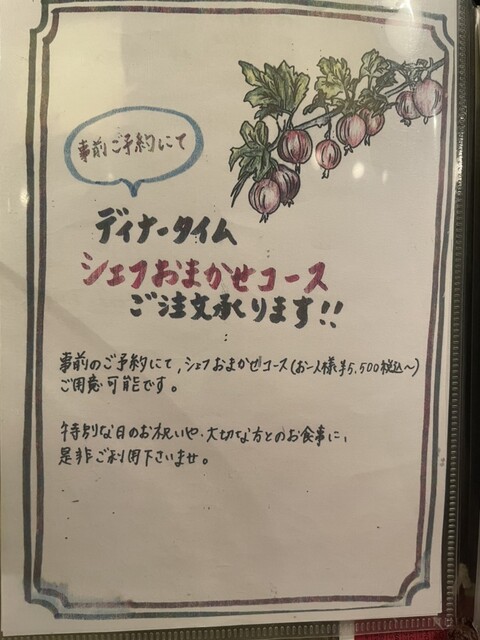 事前ご予約にて
ディナータイム
シェフおまかせコース
ご注文承ります!!
事前のご予約にて,シェフおまかせコース(お一人様¥5,500税込〜)
ご用意可能です。
特別な日のお祝いや、大切な方とのお食事に、
是非ご利用下さいませ。